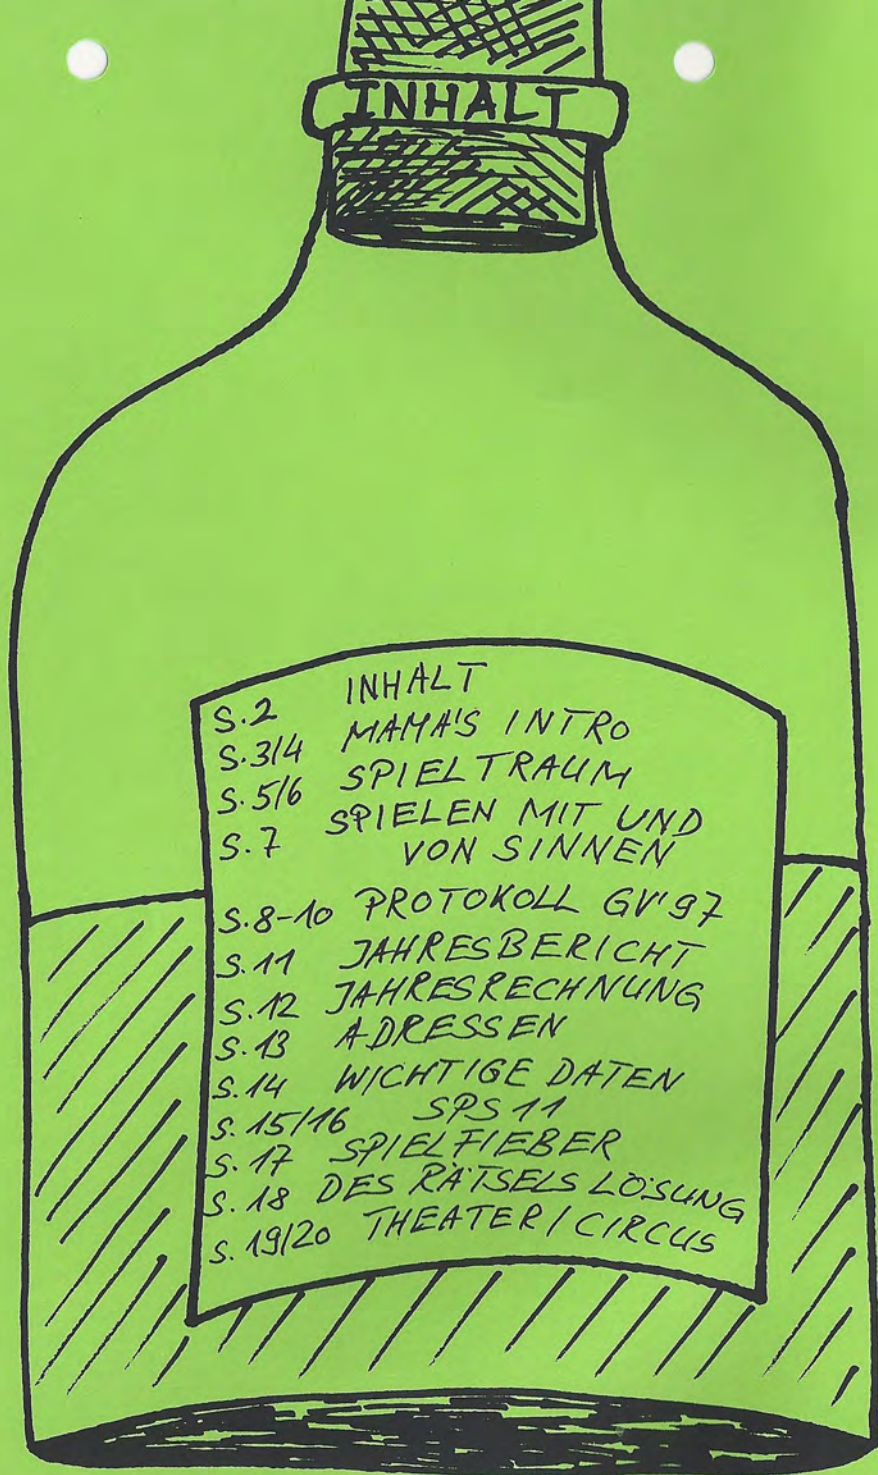 INHALT
S.2 INHALT
S.3/4 MAMA'S INTRO
S.5/6 SPIELTRAUM
S.7 SPIELEN MIT UND
VON SINNEN
S.8-10 PROTOKOLL GV'97
S.11 JAHRESBERICHT
S.12 JAHRESRECHNUNG
S.13 ADRESSEN
S.14 WICHTIGE DATEN
S.15/16 SPS 11
S.17 SPIELFIEBER
S.18 DES RÄTSELS LÖSUNG
S.19/20 THEATER/CIRCUS